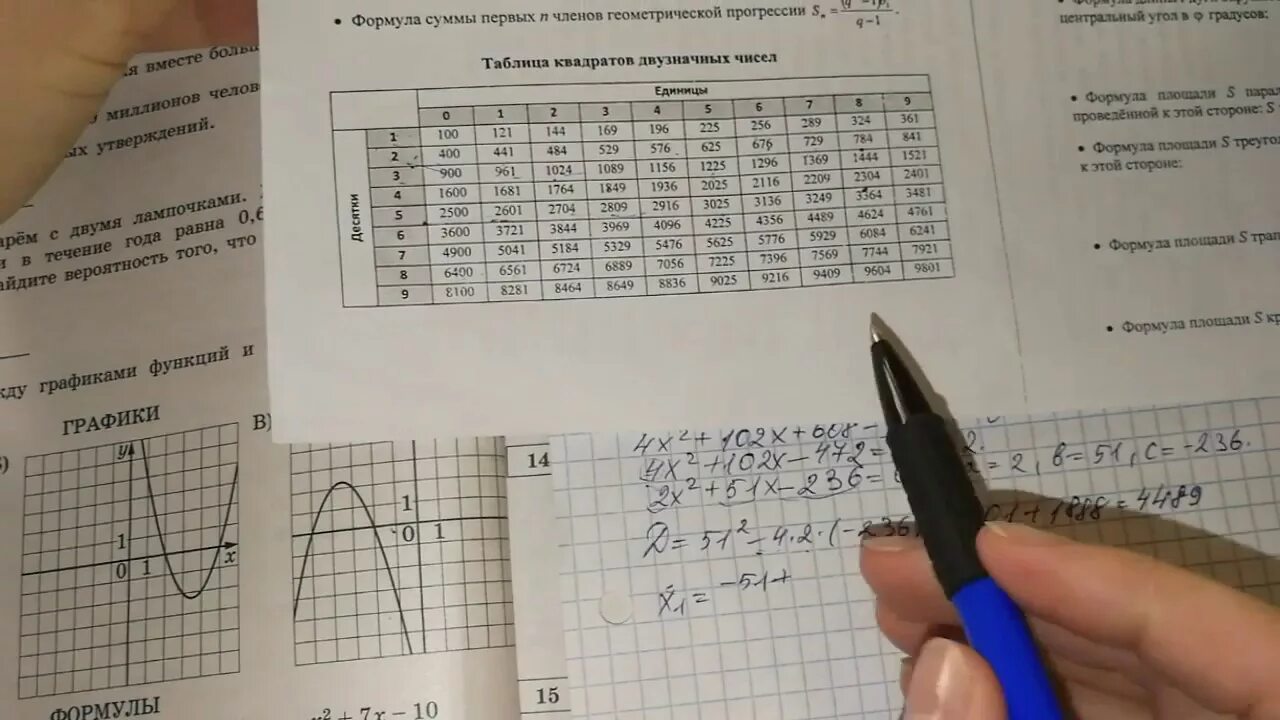 • Формула суммы первых n членов геометрической прогрессии Sₙ =
q-1
Таблица квадратов двузначных чисел
Единицы
0 1 2 3 4 5 6 7 8 9
Десятки
1 100 121 144 169 196 225 256 289 324 361
2 400 441 484 529 576 625 676 729 784 841
3 900 961 1024 1089 1156 1225 1296 1369 1444 1521
4 1600 1681 1764 1849 1936 2025 2116 2209 2304 2401
5 2500 2601 2704 2809 2916 3025 3136 3249 3364 3481
6 3600 3721 3844 3969 4096 4225 4356 4489 4624 4761
7 4900 5041 5184 5329 5476 5625 5776 5929 6084 6241
8 6400 6561 6724 6889 7056 7225 7396 7569 7744 7921
9 8100 8281 8464 8649 8836 9025 9216 9409 9604 9801
центральный угол в φ градусов:
• Формула площади S
проведённой к этой стороне: S
• Формула площади S
к этой стороне:
• Формула площади S
• Формула площади S
вместе
миллионов
утверждений.
с двумя лампочками.
в течение года равна
вероятность того, что
графиками функций и
ГРАФИКИ
В)
y
1
0 1
x
1
0 1
ФОРМУЛЫ
+ 7x − 10
14
15
4x² + 102x + 608 -
4x² + 102x - 472 =
2x² + 51x - 236 =
= 2, в = 51, c = -236.
D = 51² - 4·2·(-236
+ 1888 = 4489
x₁ = -51+